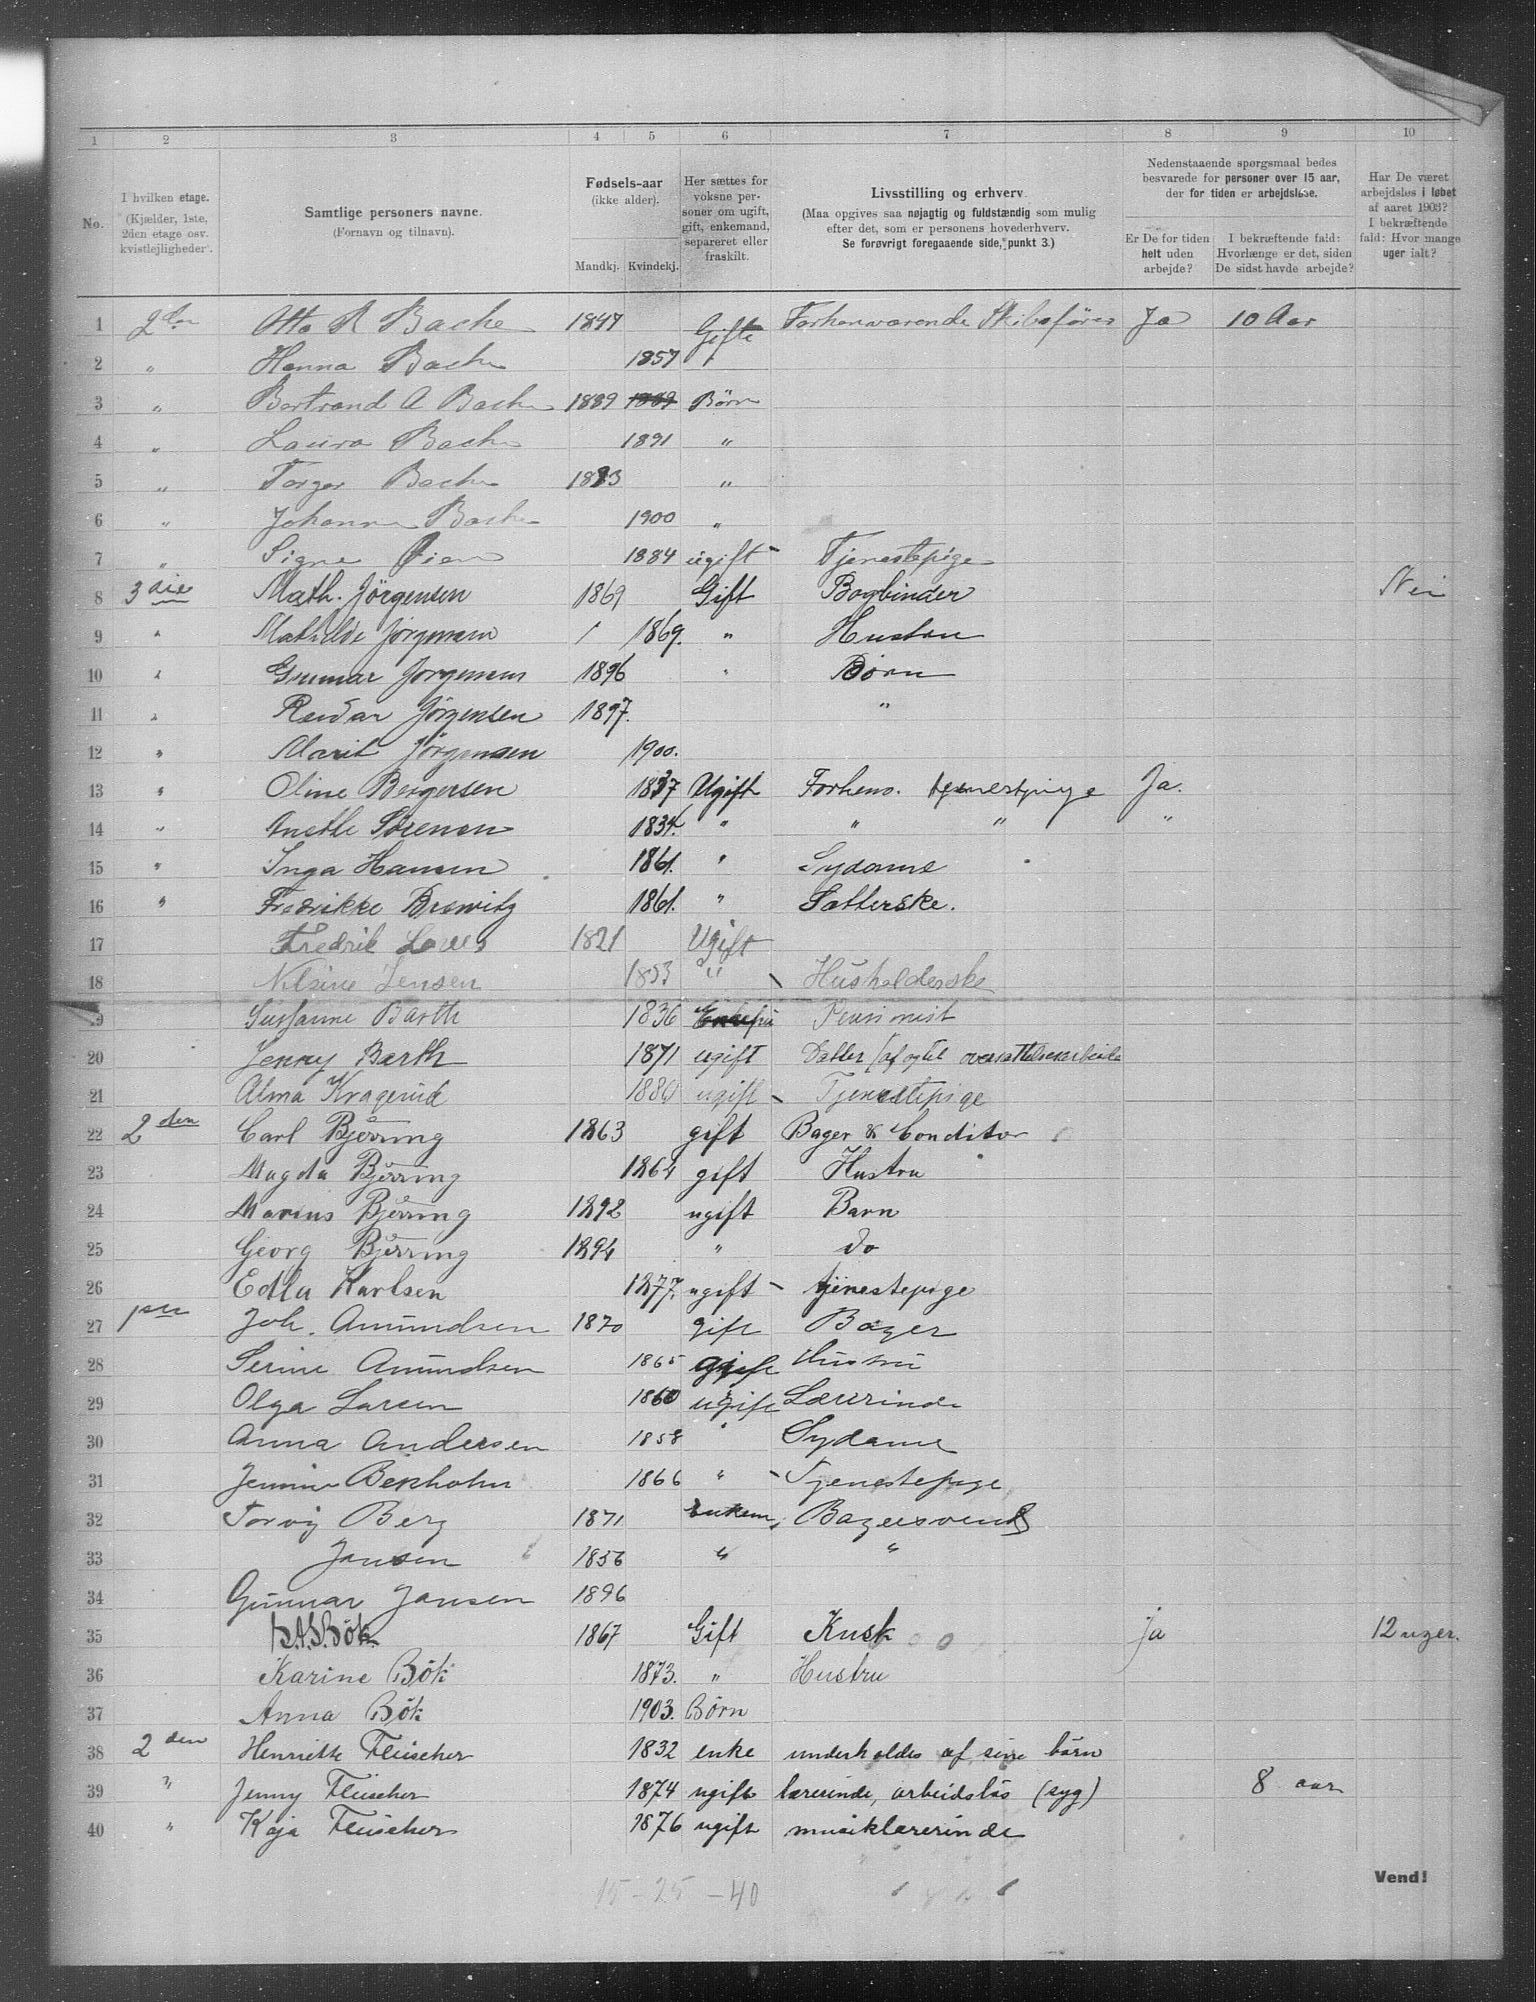 1 2 3 4 5 6 7 8 9 10
No.
I hvilken etage.
(Kjælder, 1ste, 2den etage osv. kvistlejligheder).
Samtlige personers navne.
(Fornavn og tilnavn).
Fødsels-aar
(ikke alder).
Mandkj. Kvindekj.
Her sættes for voksne personer om ugift, gift, enkemand, separeret eller fraskilt.
Livsstilling og erhverv.
(Maa opgives saa nøjagtig og fuldstændig som mulig efter det, som er personens hovederhverv.
Se forøvrigt foregaaende side, punkt 3.)
Nedenstaaende spørgsmaal bedes besvarede for personer over 15 aar, der for tiden er arbejdsløse.
Er De for tiden helt uden arbejde?
I bekræftende fald: Hvorlænge er det, siden De sidst havde arbejde?
Har De været arbejdsløs i løbet af aaret 1903? I bekræftende fald: Hvor mange uger ialt?
1 2den Otto R Bache 1847 Gifte Forhenværende Skibsfører Ja 10 Aar
2 " Hanna Bache 1857
3 " Bertrand A Bache 1889 1889 Børn
4 " Laura Bache 1891 "
5 " Torger Bache 1893 "
6 " Johanne Bache 1900 "
7 " Signe Øien 1884 ugift - Tjenestepige
8 3die Math. Jörgensen 1869 Gift Bogbinder Nei
9 " Mathilde Jörgensen / 1869. " Hustru
10 " Gunnar Jorgensen 1896 " Börn
11 " Reidar Jörgensen 1897. "
12 " Marit Jörgensen 1900.
13 " Oline Bergersen 1837 Ugift Forhenv. tjenestpige Ja.
14 " Anethe Sörensen 1834. " " " "
15 " Inga Hansen 1861. " Sydame
16 " Fredrikke Drewitz 1861. " Satterske.
17 Fredrik 1821 Ugift
18 Nilsine Jensen 1853 " Husholderske
19 Susanne Barth 1836 Enkefru Pensionist
20 Jenny Barth 1871 ugift Datter (af og til oversættelsesarbeide
21 Alma Kragerud 1880 ugift - Tjenestepige
22 2den Carl Bjerring 1863 gift Bager & Conditor
23 Magda Bjerring 1864 gift Hustru
24 Marius Bjerring 1892 ugift Barn
25 Georg Bjerring 1894 " do
26 Edla Karlsen 1877. ugift - tjenestepige
27 Joh. Amundsen 1870 gift Bager
28 Serine Amundsen 1865 gift Hustru
29 Olga Larsen 1860 ugift Lærerinde
30 Anna Andersen 1858 " Sydame
31 1866 " - Tjenestepige
32 Torvig Berg 1871 Enkem. Bagersvend
33 Jansen 1856 " "
34 Gunnar Jansen 1896
35 Bök. 1867 Gift Kusk Ja 12 uger.
36 Karine Bök 1873. " Hustru
37 Anna Bök 1903. Børn
38 2den Henriette Fleischer 1832 enke underholdes af sine börn
39 " Jenny Fleischer 1874 ugift lærerinde, arbeidslös (syg) 8 aar
40 " Kaja Fleischer 1876 ugift musiklærerinde
15 - 25 - 40
Vend!